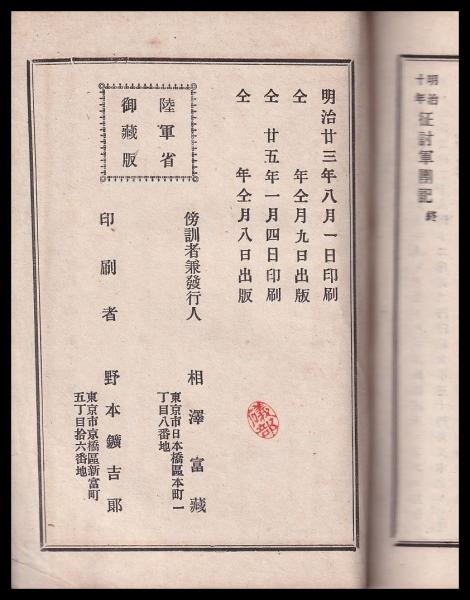 明治
十年
征討軍團記
終
明治廿三年八月一日印刷
仝　年仝月九日出版
仝　廿五年一月四日印刷
仝　年仝月八日出版
陸軍省
御藏版
傍訓者兼發行人
相澤富藏
東京市日本橋區本町一
丁目八番地
印刷者
野本鑛吉郎
東京市京橋區新富町
五丁目拾六番地
磯部